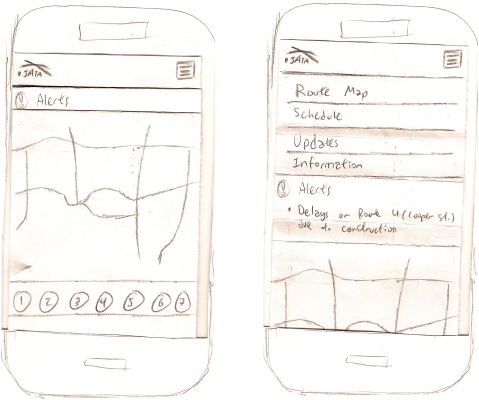 JATA
Alerts
1 2 3 4 5 6 7
JATA
Route Map
Schedule
Updates
Information
Alerts
• Delays on Route 4 (Cooper St.)
due to construction